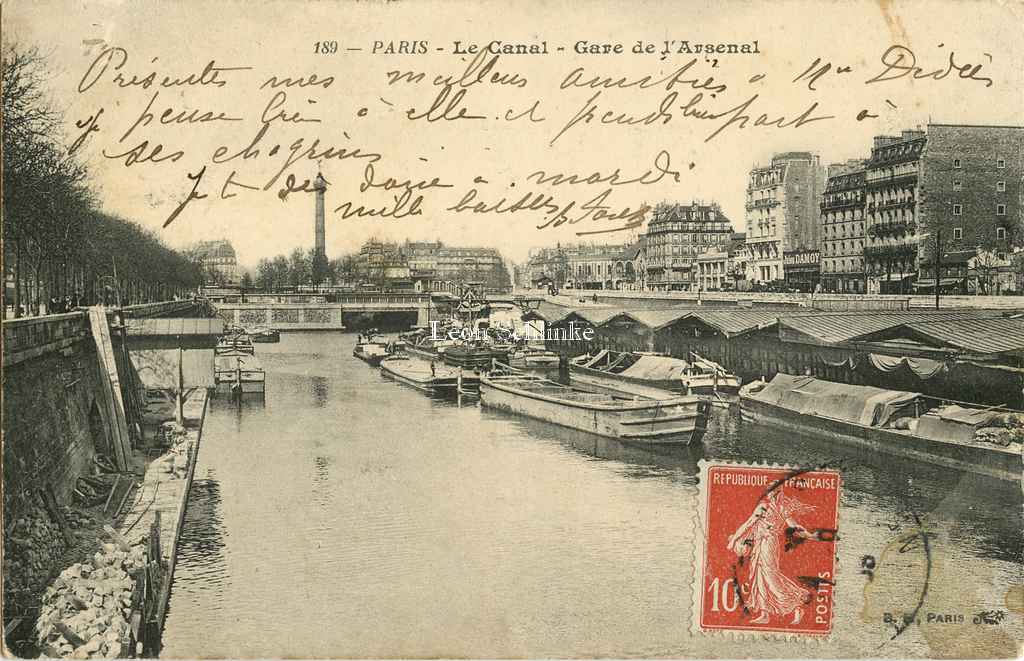 189 — PARIS - Le Canal - Gare de l'Arsenal
Présentes mes meilleurs amitiés à Didiés
je pense bien à elle et prends bien part à
ses chagrins
Je te dis à mardi
mille baisers
DAMOY
Léon Schinke
REPUBLIQUE FRANÇAISE
10c
POSTES
PARIS